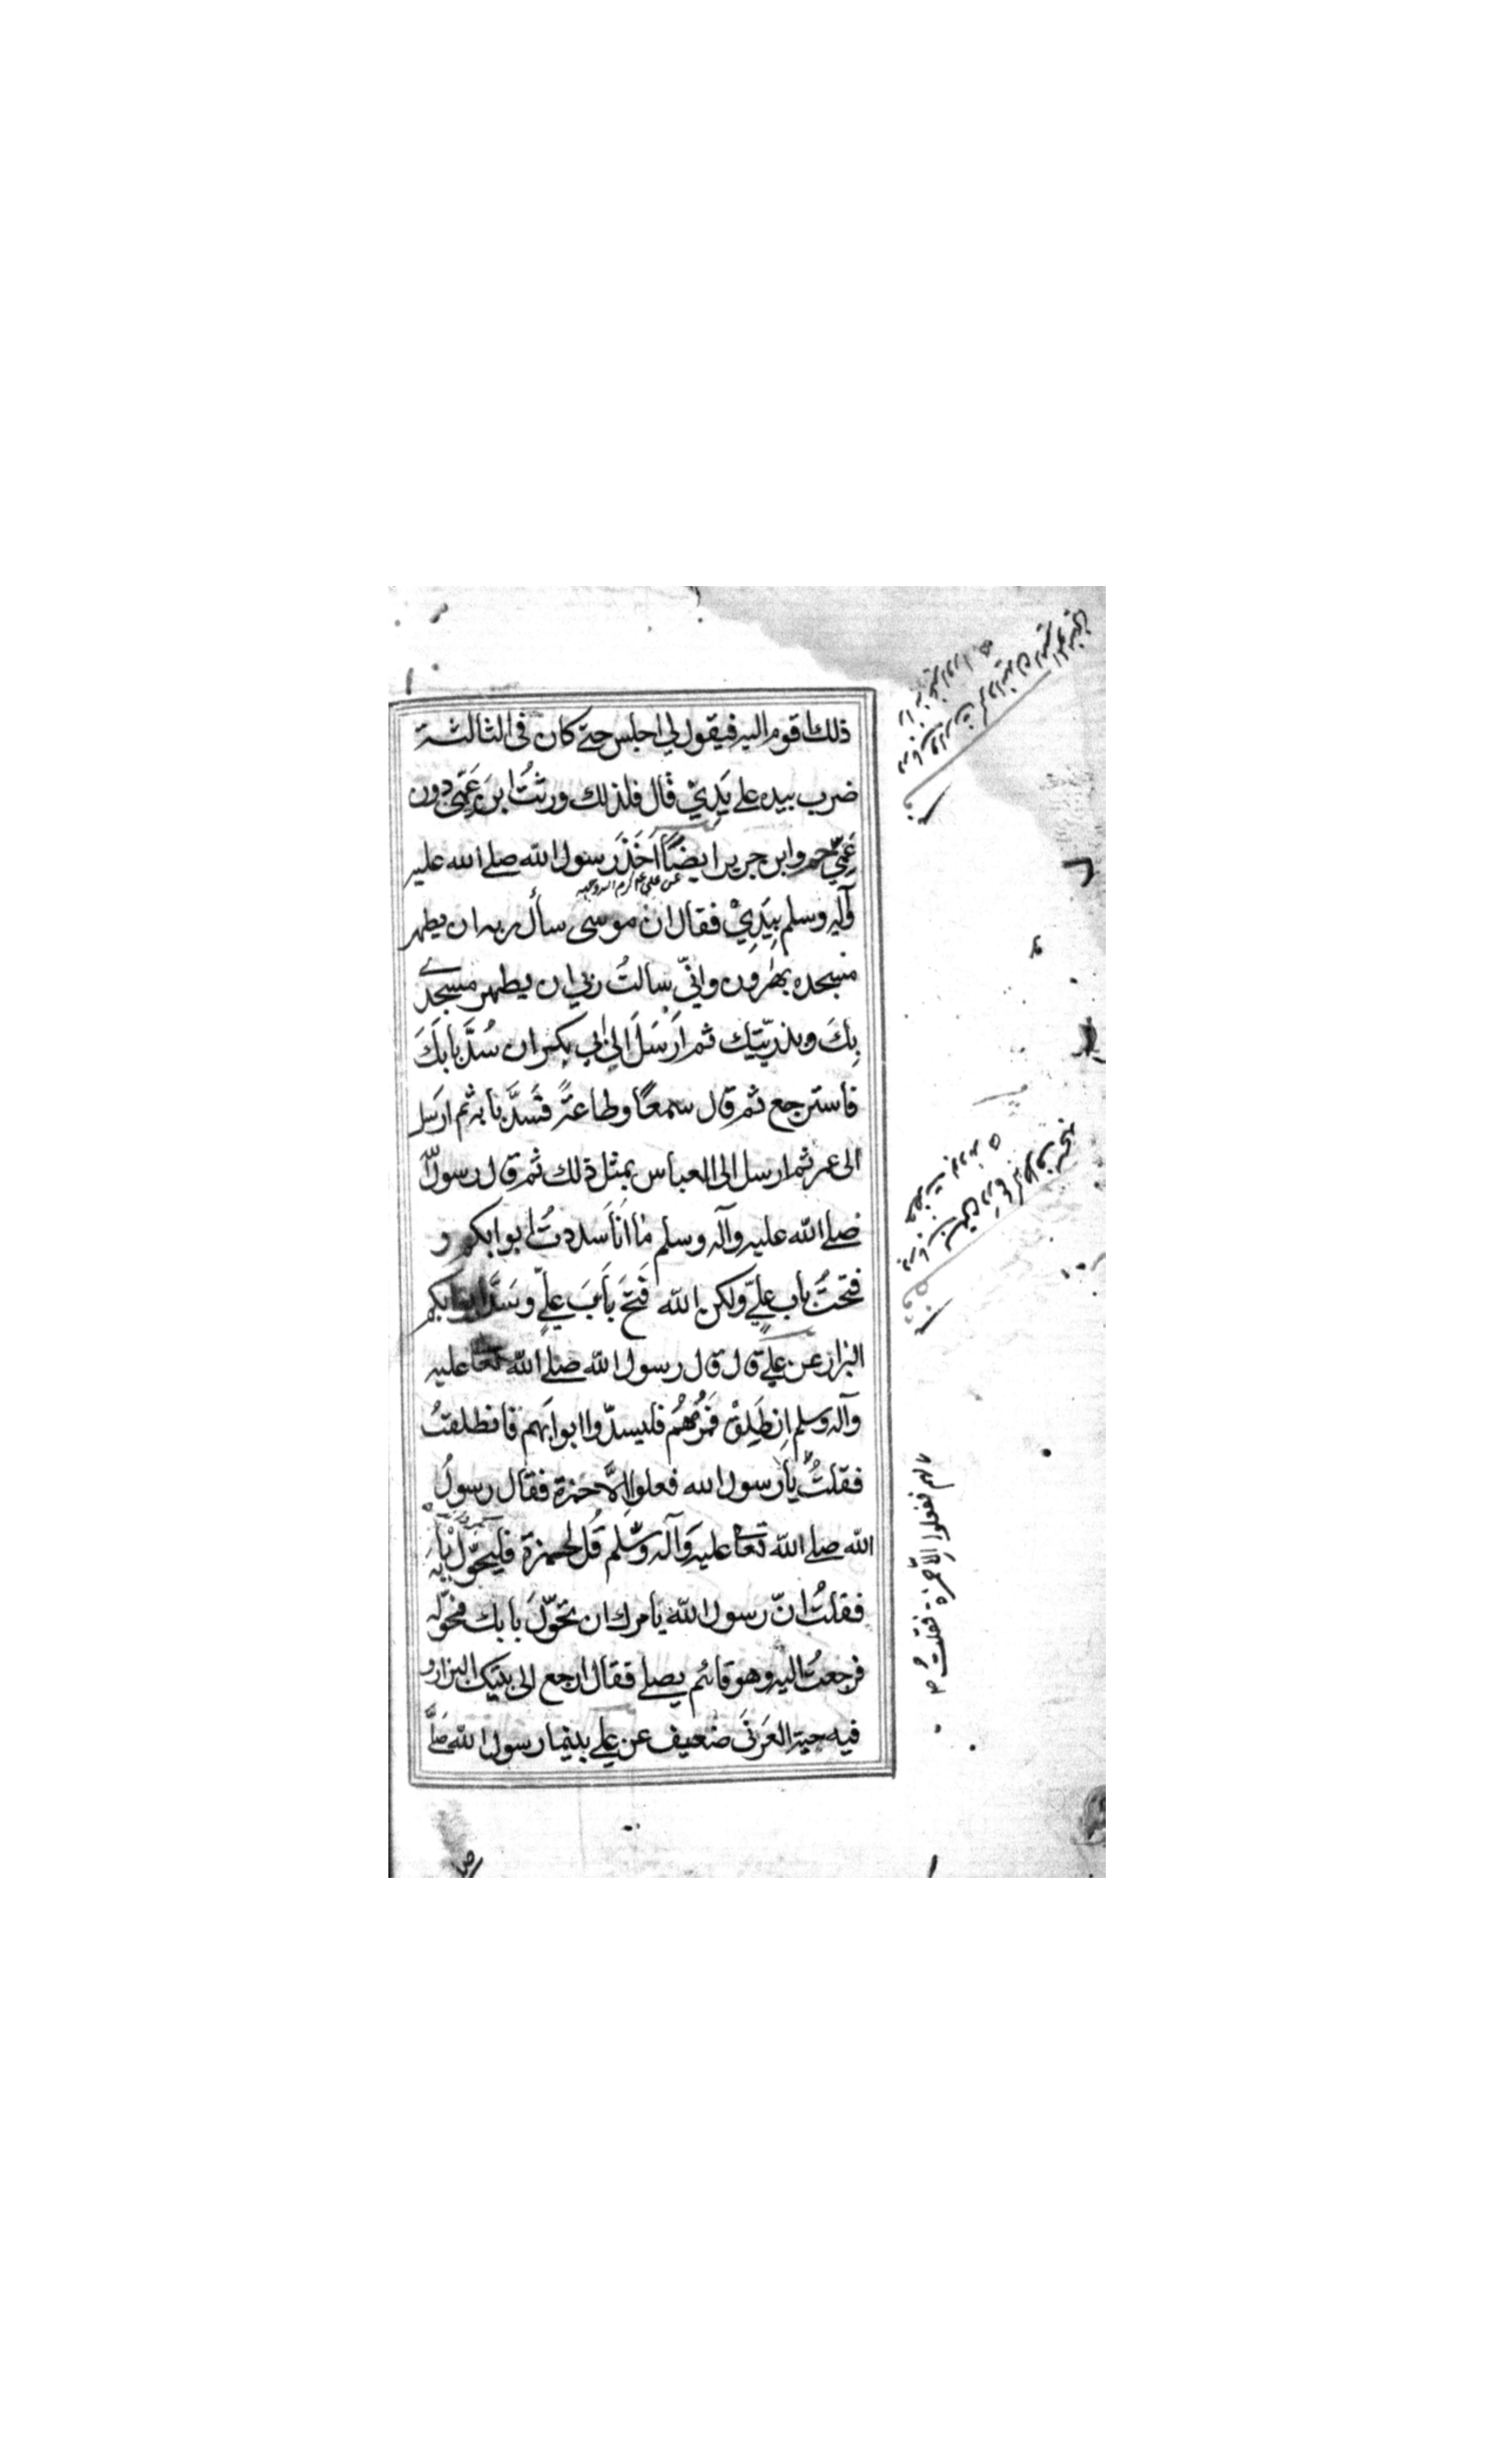 ذلك اقوم اليه فيقول لي اجلس حتى كان فى الثالثة
ضرب بيده على يَدِيْ قال فلذلك ورثتُ ابنَ عَمّي دون
عَمّي حم وابن جرير ايضًا اَخَذَ رسول الله صلى الله عليه
عن علي كرم الله وجهه
وآله وسلم بِيَدِيْ فقال ان موسى سأل ربه ان يطهر
مسجده بهرون وانّي سالتُ ربي ان يطهر مسجدي
بِكَ وبذريّتك ثم اَرْسَلَ الى ابي بكر ان سُدَّ بابَكَ
فاسترجع ثم قال سمعًا وطاعةً فسَدَّ بابه ثم ارسل
الى عمر ثم ارسل الى العباس بمثل ذلك ثم قال رسول الله
صلى الله عليه وآله وسلم ما انا سددتُ ابوابكم و
فتحتُ باب عليٍّ ولكن الله فَتَحَ بابَ عليٍّ وسَدَّ ابوابكم
البزار عن علي قال قال رسول الله صلى الله تعا عليه
وآله وسلم اِنطَلِقْ فَمُرْهُمْ فليسدّوا ابوابهم فانطلقتُ
فقلتُ يا رسول الله فعلوا اِلّا حمزة فقال رسولُ
الله صلى الله تعا عليه وآله وسلم قُل لحمزة فليحوّل بابه
فقلتُ انّ رسول الله يامرك ان تحوّلَ بابك فحوّله
فرجعتُ اليه وهو قائم يصلي فقال ارجع الى بيتك البزار و
فيه حبة العرنى ضعيف عن علي بينما رسول الله صَلَّى
لهم ففعلوا الّا حمزة فقلتُ